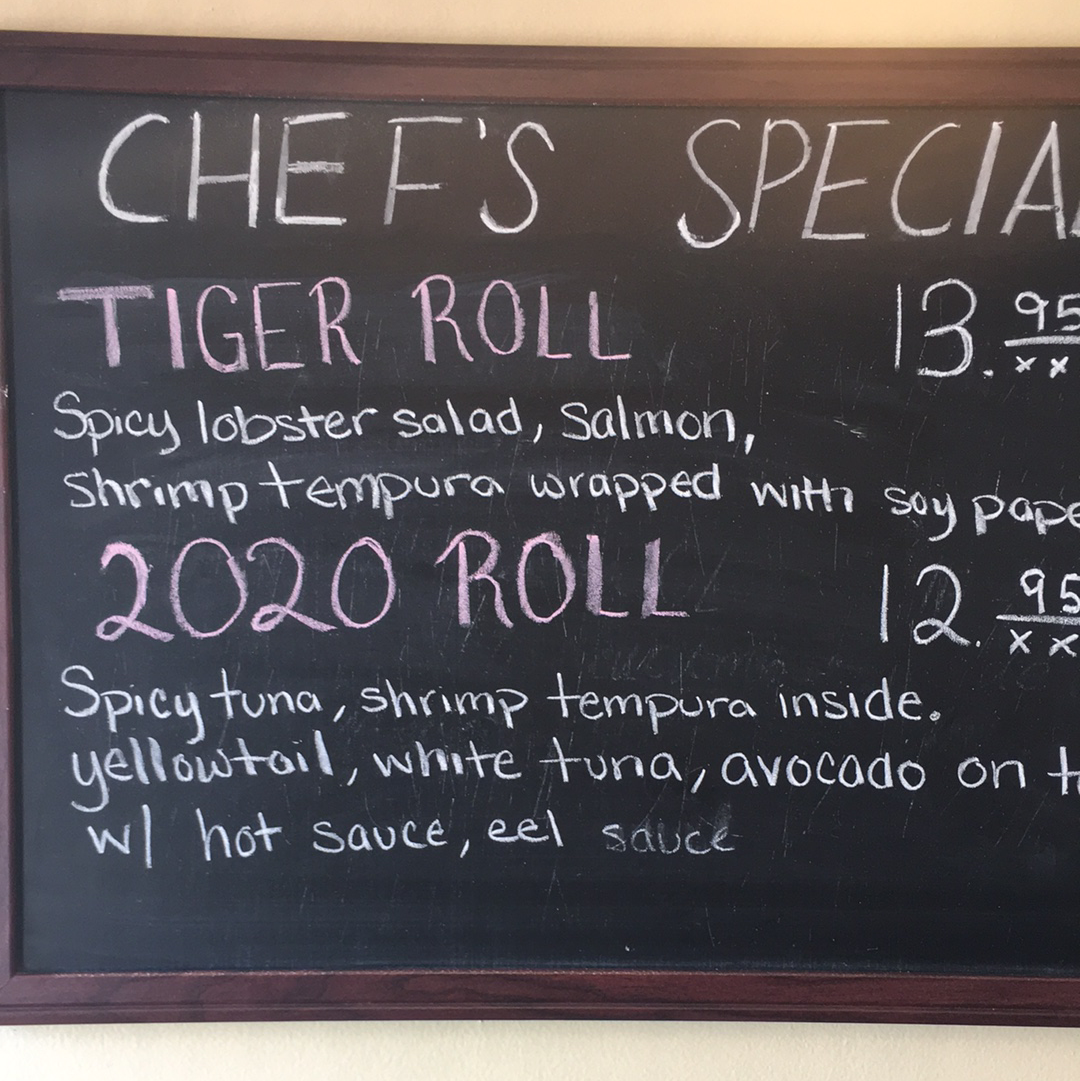 CHEF'S SPECIA
TIGER ROLL 13.95 xx
Spicy lobster salad, salmon,
shrimp tempura wrapped with soy pape
2020 ROLL 12.95 xx
Spicy tuna, shrimp tempura inside.
yellowtail, white tuna, avocado on t
w/ hot sauce, eel sauce